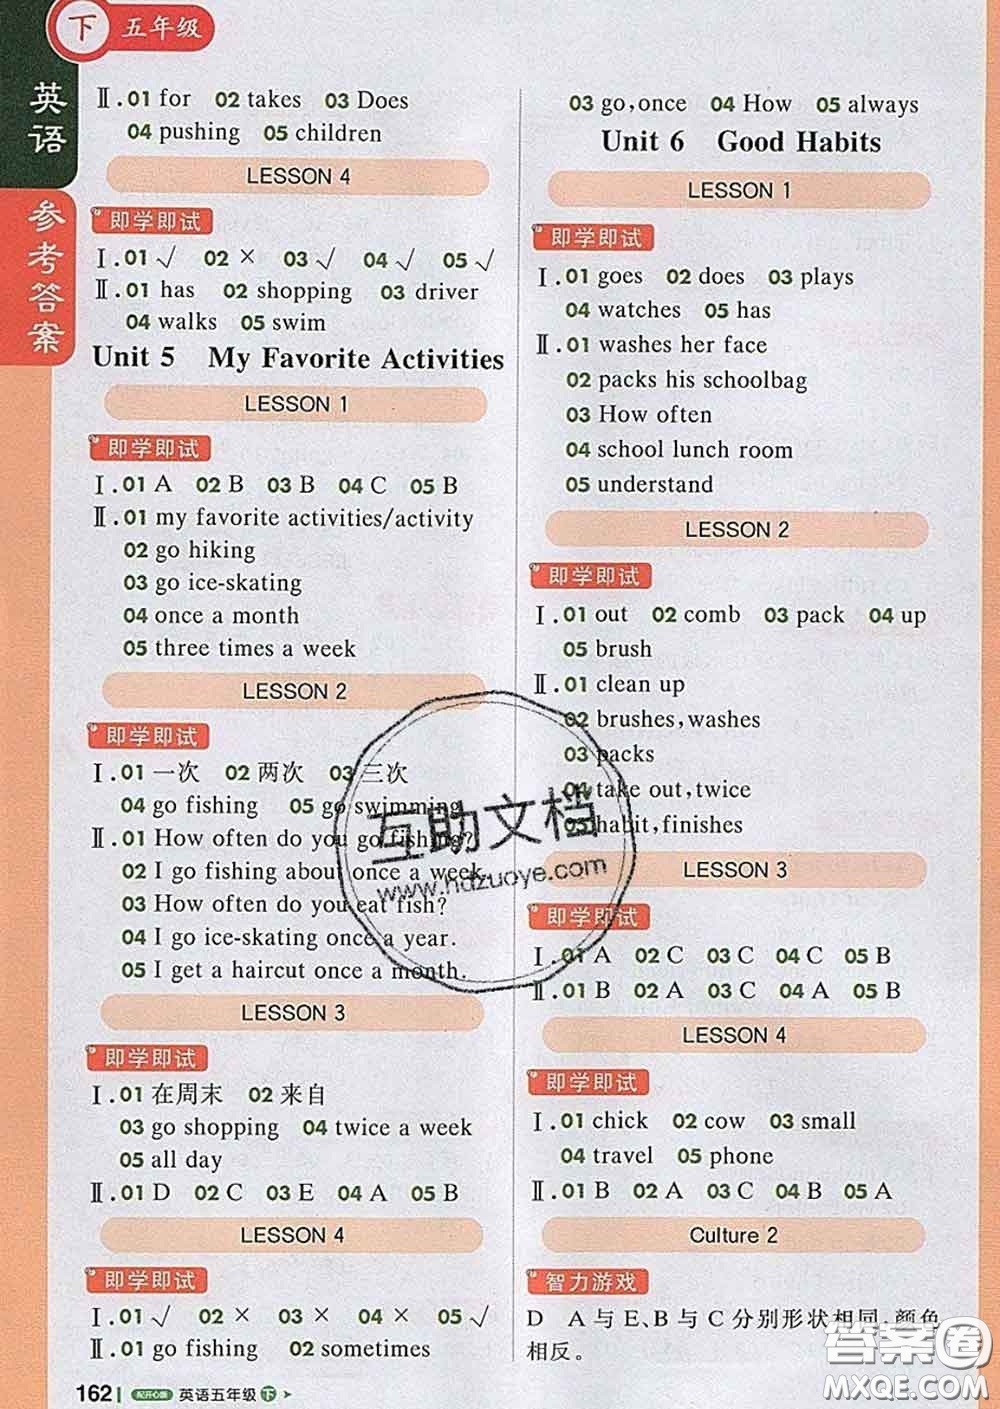 下 五年级
英语
参考答案
Ⅱ.01 for 02 takes 03 Does
04 pushing 05 children
LESSON 4
即学即试
Ⅰ.01 √ 02 × 03 √ 04 √ 05 √
Ⅱ.01 has 02 shopping 03 driver
04 walks 05 swim
Unit 5 My Favorite Activities
LESSON 1
即学即试
Ⅰ.01 A 02 B 03 B 04 C 05 B
Ⅱ.01 my favorite activities/activity
02 go hiking
03 go ice-skating
04 once a month
05 three times a week
LESSON 2
即学即试
Ⅰ.01 一次 02 两次 03 三次
04 go fishing 05 go swimming
Ⅱ.01 How often do you go fishing?
02 I go fishing about once a week.
03 How often do you eat fish?
04 I go ice-skating once a year.
05 I get a haircut once a month.
LESSON 3
即学即试
Ⅰ.01 在周末 02 来自
03 go shopping 04 twice a week
05 all day
Ⅱ.01 D 02 C 03 E 04 A 05 B
LESSON 4
即学即试
Ⅰ.01 √ 02 × 03 × 04 × 05 √
Ⅱ.01 go fishing 02 sometimes
03 go,once 04 How 05 always
Unit 6 Good Habits
LESSON 1
即学即试
Ⅰ.01 goes 02 does 03 plays
04 watches 05 has
Ⅱ.01 washes her face
02 packs his schoolbag
03 How often
04 school lunch room
05 understand
LESSON 2
即学即试
Ⅰ.01 out 02 comb 03 pack 04 up
05 brush
Ⅱ.01 clean up
02 brushes,washes
03 packs
04 take out,twice
05 habit,finishes
LESSON 3
即学即试
Ⅰ.01 A 02 C 03 C 04 C 05 B
Ⅱ.01 B 02 A 03 C 04 A 05 B
LESSON 4
即学即试
Ⅰ.01 chick 02 cow 03 small
04 travel 05 phone
Ⅱ.01 B 02 A 03 B 04 B 05 A
Culture 2
智力游戏
D A 与 E、B 与 C 分别形状相同,颜色
相反。
162 配开心版 英语五年级 下
互助文档
www.hdzuoye.com
答案圈
MXQE.COM